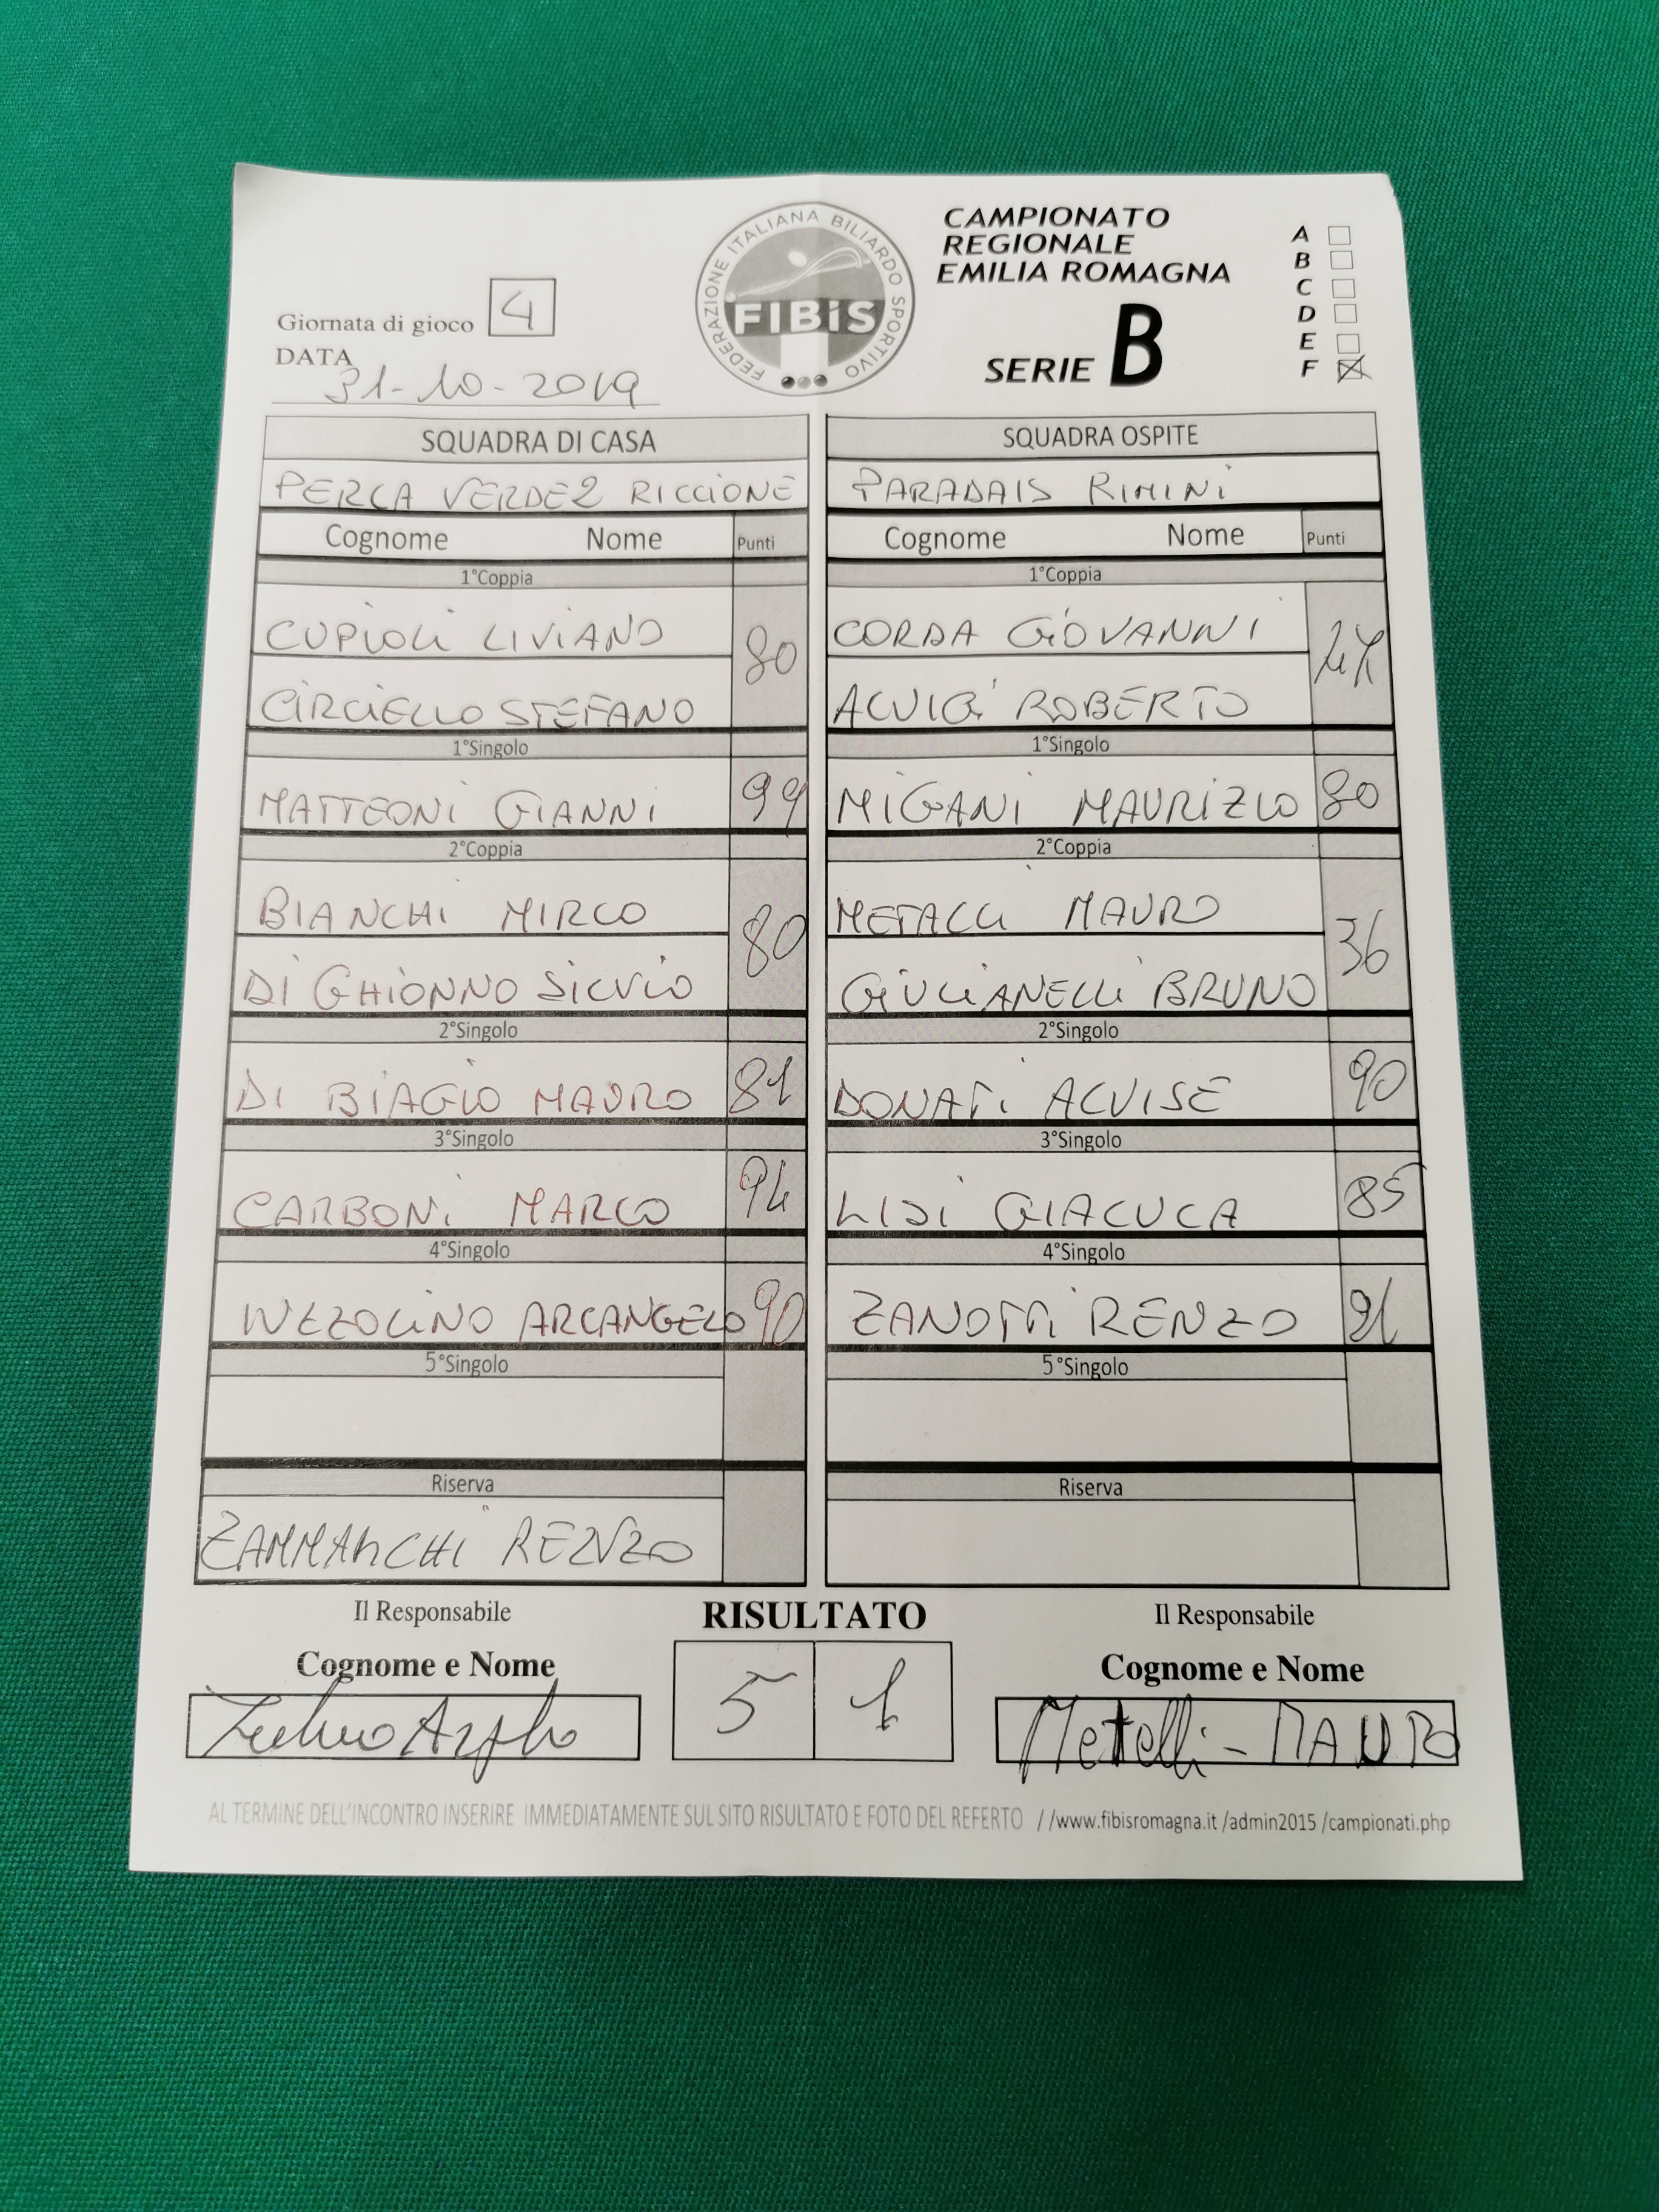 FEDERAZIONE ITALIANA BILIARDO SPORTIVO
FIBiS
CAMPIONATO
REGIONALE
EMILIA ROMAGNA
SERIE B
A
B
C
D
E
F
Giornata di gioco 4
DATA
31-10-2019
SQUADRA DI CASA
PERLA VERDE2 RICCIONE
Cognome Nome Punti
1°Coppia
CUPIOLI LIVIANO
80
CIRCIELLO STEFANO
1°Singolo
MATTEONI GIANNI 99
2°Coppia
BIANCHI MIRCO
80
DI GHIONNO SILVIO
2°Singolo
DI BIAGIO MAURO 81
3°Singolo
CARBONI MARCO 94
4°Singolo
ARCANGELO 90
5°Singolo
Riserva
ZAMMARCHI RENZO
SQUADRA OSPITE
PARADAIS RIMINI
Cognome Nome Punti
1°Coppia
CORDA GIOVANNI
ALUIGI ROBERTO
1°Singolo
MIGANI MAURIZIO 80
2°Coppia
METALLI MAURO
36
GIULIANELLI BRUNO
2°Singolo
DONATI ALVISE 90
3°Singolo
LISI GIALUCA 85
4°Singolo
ZANOTTI RENZO
5°Singolo
Riserva
Il Responsabile
Cognome e Nome
RISULTATO
5 1
Il Responsabile
Cognome e Nome
Metelli - MAURO
AL TERMINE DELL'INCONTRO INSERIRE IMMEDIATAMENTE SUL SITO RISULTATO E FOTO DEL REFERTO //www.fibisromagna.it /admin2015 /campionati.php